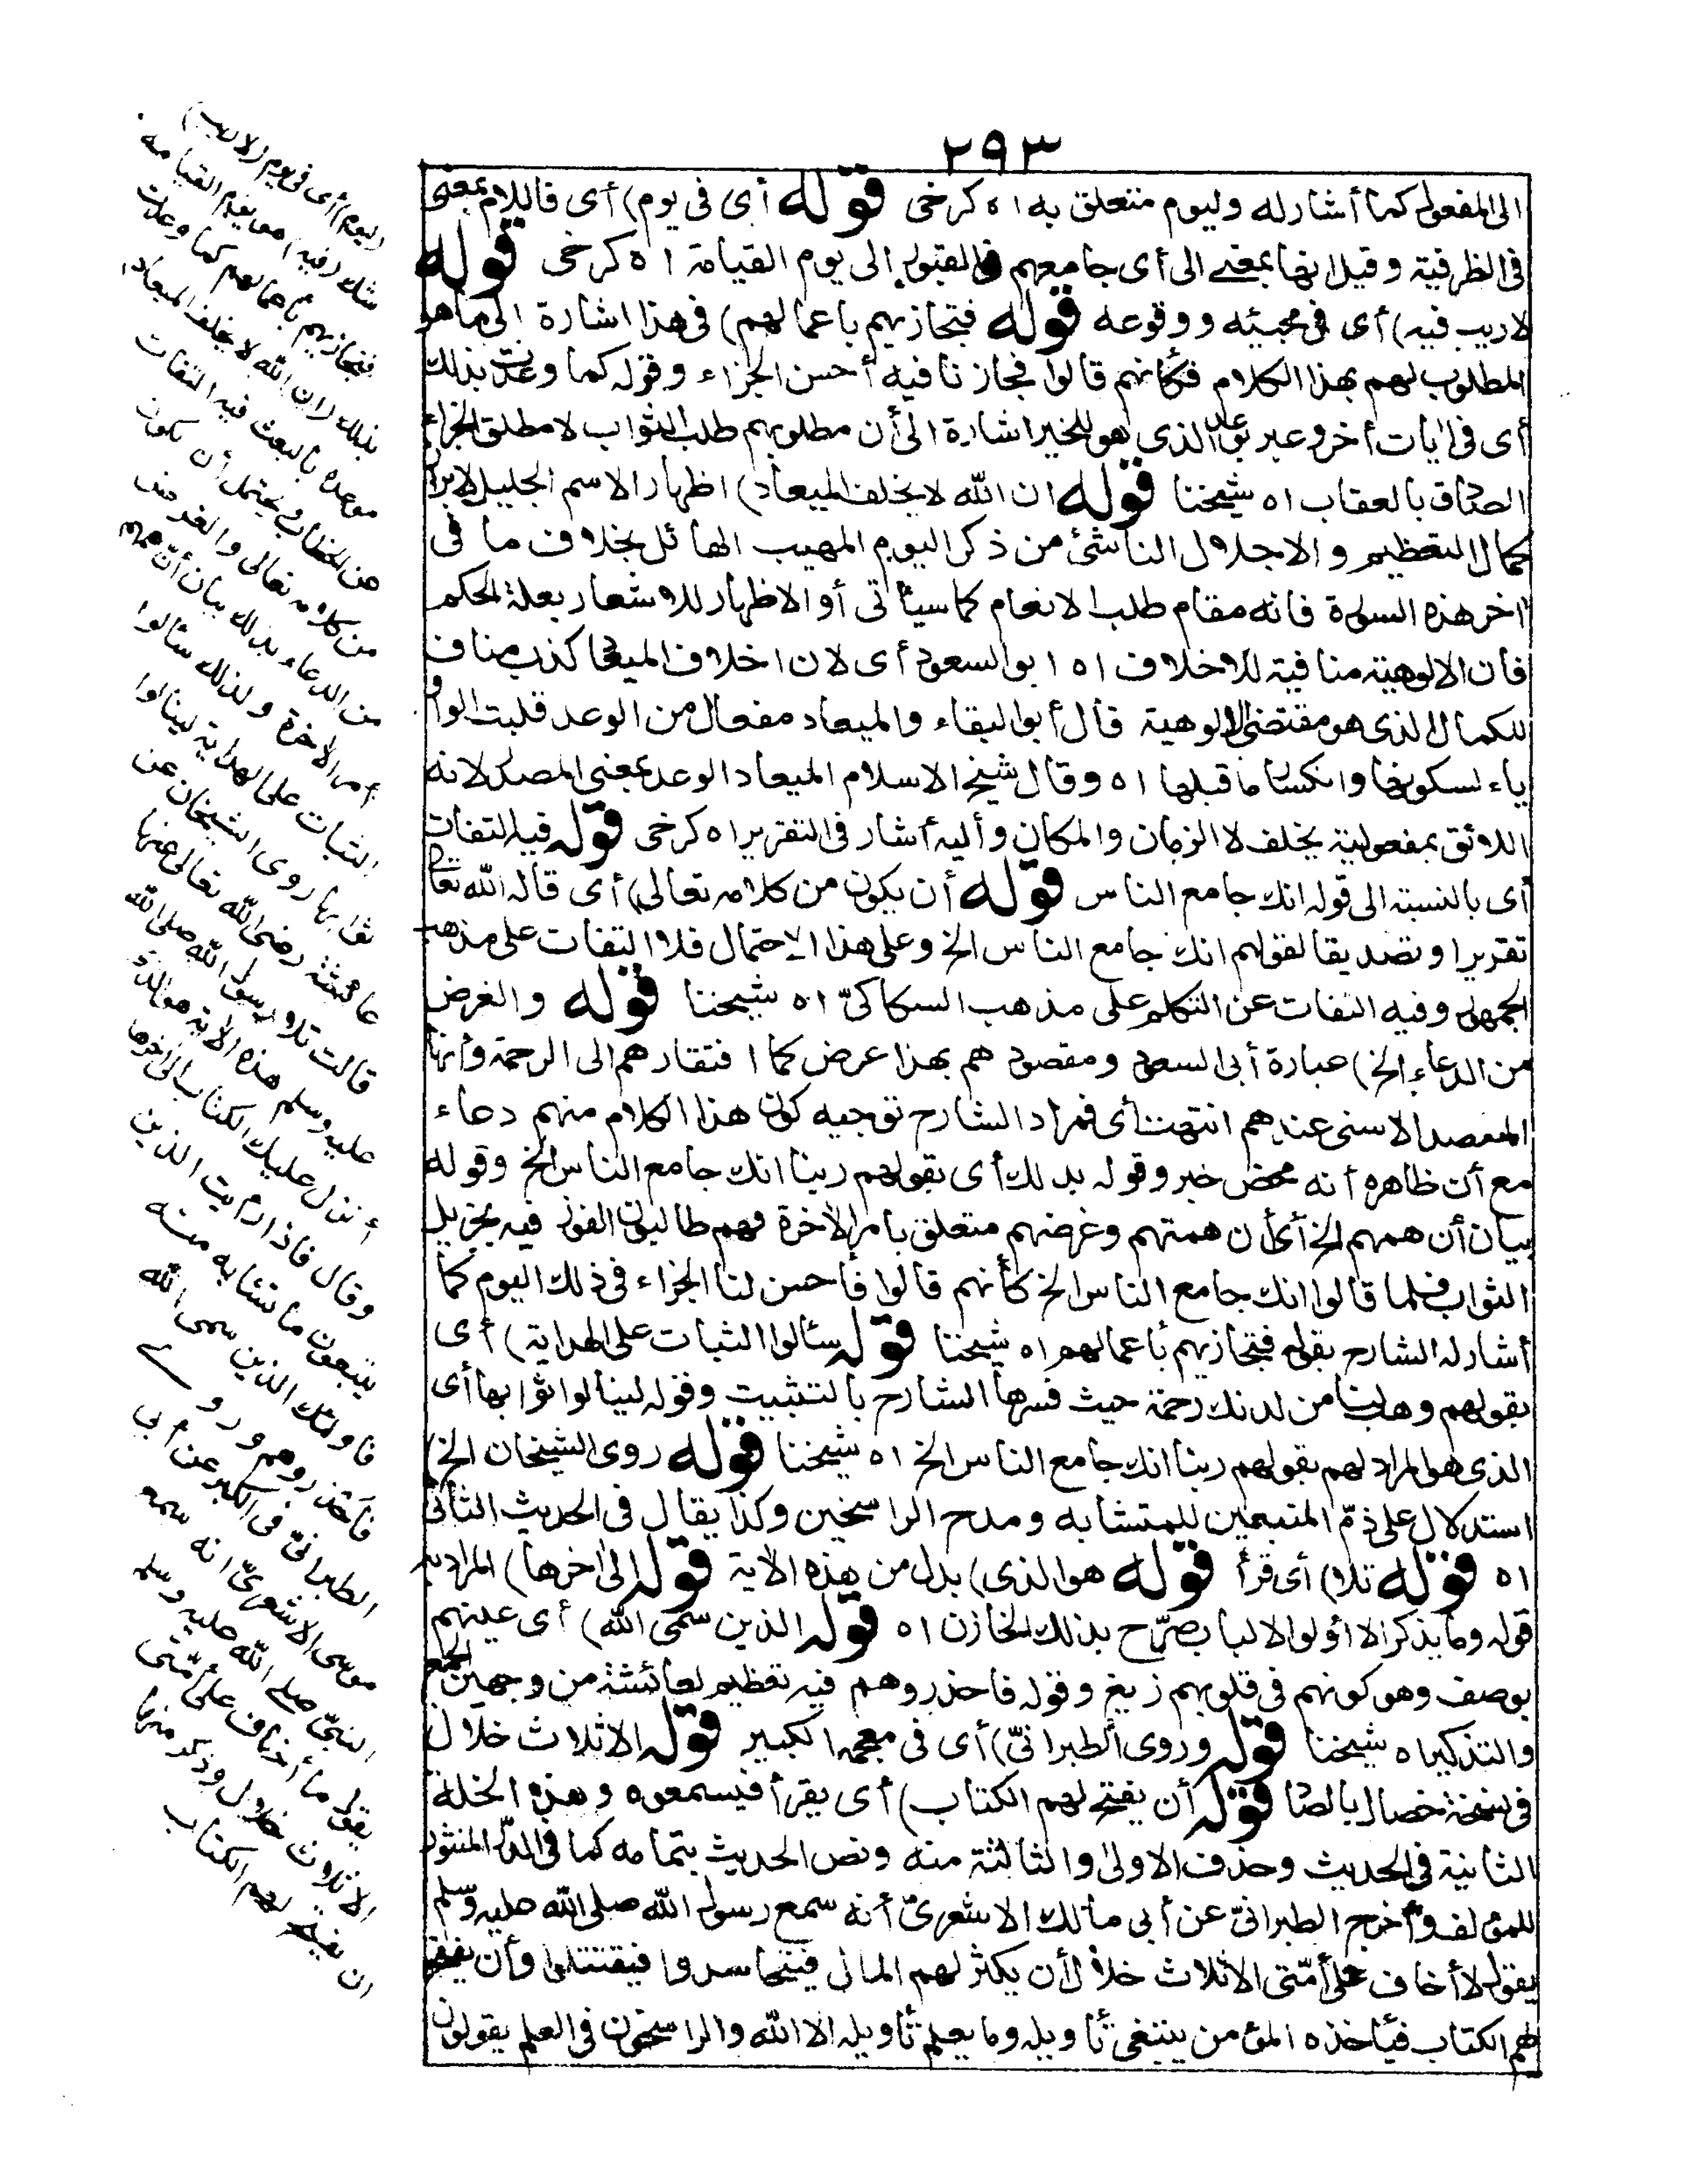 ٢٩٣
الى المفعول كما أشار له وليوم متعلق به اه كرخى قوله أى فى يوم) أى فاللام بمعنى
فى الظرفية وقيل انها بمعنى الى أى جامعهم فى القبور الى يوم القيامة اه كرخى قوله
لا ريب فيه) أى فى مجيئه ووقوعه قوله فتجازيهم باعمالهم) فى هذا اشارة الى ما هو
المطلوب لهم بهذا الكلام فكأنهم قالوا فجازنا فيه أحسن الجزاء وقوله كما وعدت بذلك
أى فى ايات أخر وعبر بوعد الذى هو للخير اشارة الى أن مطلوبهم طلب الثواب لا مطلق الجزاء
الصادق بالعقاب اه شيخنا قوله ان الله لا يخلف الميعاد) اظهار الاسم الجليل لابراز
كمال التعظيم والاجلال الناشئ من ذكر اليوم المهيب الهائل بخلاف ما فى
اخر هذه السورة فانه مقام طلب الانعام كما سيأتى أو الاظهار للاشعار بعلة الحكم
فان الالوهية منافية للاخلاف اه ابو السعود أى لان اخلاف الميعاد كذب مناف
للكمال الذى هو مقتضى الالوهية قال أبو البقاء والميعاد مفعال من الوعد قلبت الواو
ياء لسكونها وانكسار ما قبلها اه وقال شيخ الاسلام الميعاد الوعد بمعنى المصدر لانه
اللائق بمفعولية يخلف لا الزمان والمكان وأليه أشار فى التقرير اه كرخى قوله فيه التفات
أى بالنسبة الى قوله انك جامع الناس قوله أن يكون من كلامه تعالى) أى قاله الله تعالى
تقريرا وتصديقا لقولهم انك جامع الناس الخ وعلى هذا الاحتمال فلا التفات على مذهب
الجمهور وفيه التفات عن التكلم على مذهب السكاكىّ اه شيخنا قوله والغرض
من الدعاء الخ) عبارة أبى السعود ومقصودهم بهذا عرض كمال افتقارهم الى الرحمة وأنها
المقصد الاسنى عندهم انتهت أى فمراد الشارح توجيه كون هذا الكلام منهم دعاء
مع أن ظاهره أنه محض خبر وقوله بذلك أى بقولهم ربنا انك جامع الناس الخ وقوله
بيان أن همهم الخ أى أن همتهم وغرضهم متعلق بامر الاخرة فهم طالبون الفوز فيه بجزيل
الثواب فلما قالوا انك جامع الناس الخ كأنهم قالوا فأحسن لنا الجزاء فى ذلك اليوم كما
أشار له الشارح بقوله فيتجازيهم بأعمالهم اه شيخنا قوله سألوا الثبات على الهداية) أى
بقولهم وهب لنا من لدنك رحمة حيث فسرها الشارح بالتثبيت وقوله لينالوا ثوابها أى
الذى هو المراد لهم بقولهم ربنا انك جامع الناس الخ اه شيخنا قوله روى الشيخان الخ)
استدلال على ذمّ المتبعين للمتشابه ومدح الراسخين وكذا يقال فى الحديث الثانى
اه قوله تلا) أى قرأ قوله هو الذى) بدل من هذه الاية قوله الى اخرها) المراد به
قوله وما يذكر الا أولوا الالباب صرّح بذلك الخازن اه قوله الذين سمى الله) أى عينهم
بوصف وهو كونهم فى قلوبهم زيغ وقوله فاحذروهم فيه تعظيم لعائشة من وجهين الجمع
والتذكير اه شيخنا قوله وروى الطبرانىّ) أى فى معجمه الكبير قوله الا ثلاث خلال
فى نسخة خصال بالصاد قوله أن يفتح لهم الكتاب) أى يقرأ فيسمعوه وهذه الخلة
الثانية فى الحديث وحذف الاولى والثالثة منه ونص الحديث بتمامه كما فى الدر المنثور
للمؤلف وأخرج الطبرانىّ عن أبى مالك الاشعرىّ أنه سمع رسول الله صلى الله عليه وسلم
يقول لا أخاف على أمّتى الا ثلاث خلال أن يكثر لهم المال فيتحاسدوا فيقتتلوا وأن يفتح
لهم الكتاب فيأخذه المؤمن يبتغى تأويله وما يعلم تأويله الا الله والراسخون فى العلم يقولون
(ليوم) أى فى يوم (لا ريب)
شك (فيه) هو يوم القيامة
فتجازيهم بأعمالهم كما وعدت
بذلك (ان الله لا يخلف الميعاد)
موعده بالبعث فيه التفات
عن الخطاب ويحتمل أن يكون
من كلامه تعالى والغرض
من الدعاء بذلك بيان أنّ همهم
أمر الاخرة ولذلك سألوا
الثبات على الهداية لينالوا
ثوابها روى الشيخان عن
عائشة رضى الله تعالى عنها
قالت تلا رسول الله صلى الله
عليه وسلم هذه الاية هو الذى
أنزل عليك الكتاب الى اخرها
وقال فاذا رأيت الذين
يتبعون ما تشابه منه
فاولئك الذين سمى الله
فاحذروهم وروى
الطبرانىّ فى الكبير عن أبى
موسى الاشعرىّ انه سمع
النبىّ صلى الله عليه وسلم
يقول ما أخاف على أمّتى
الا ثلاث خلال وذكر منها
ان يفتح لهم الكتاب